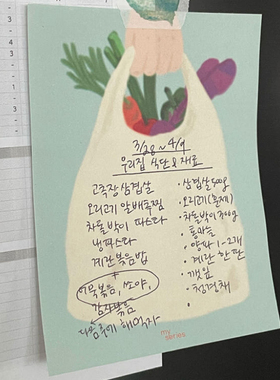 3/28 ~ 4/9
우리집 식단 & 재료
고추장 삼겹살
오리고기 알배추찜
차돌박이 파스타
냉파스타
계란볶음밥
+
어묵볶음, 쏘야,
감자볶음
다음주에 해먹자
· 삼겹살 500g
· 오리고기 (훈제)
· 차돌박이 300g
· 통마늘
· 양파 1-2개
· 계란 한 판
· 깻잎
· 청경채
·